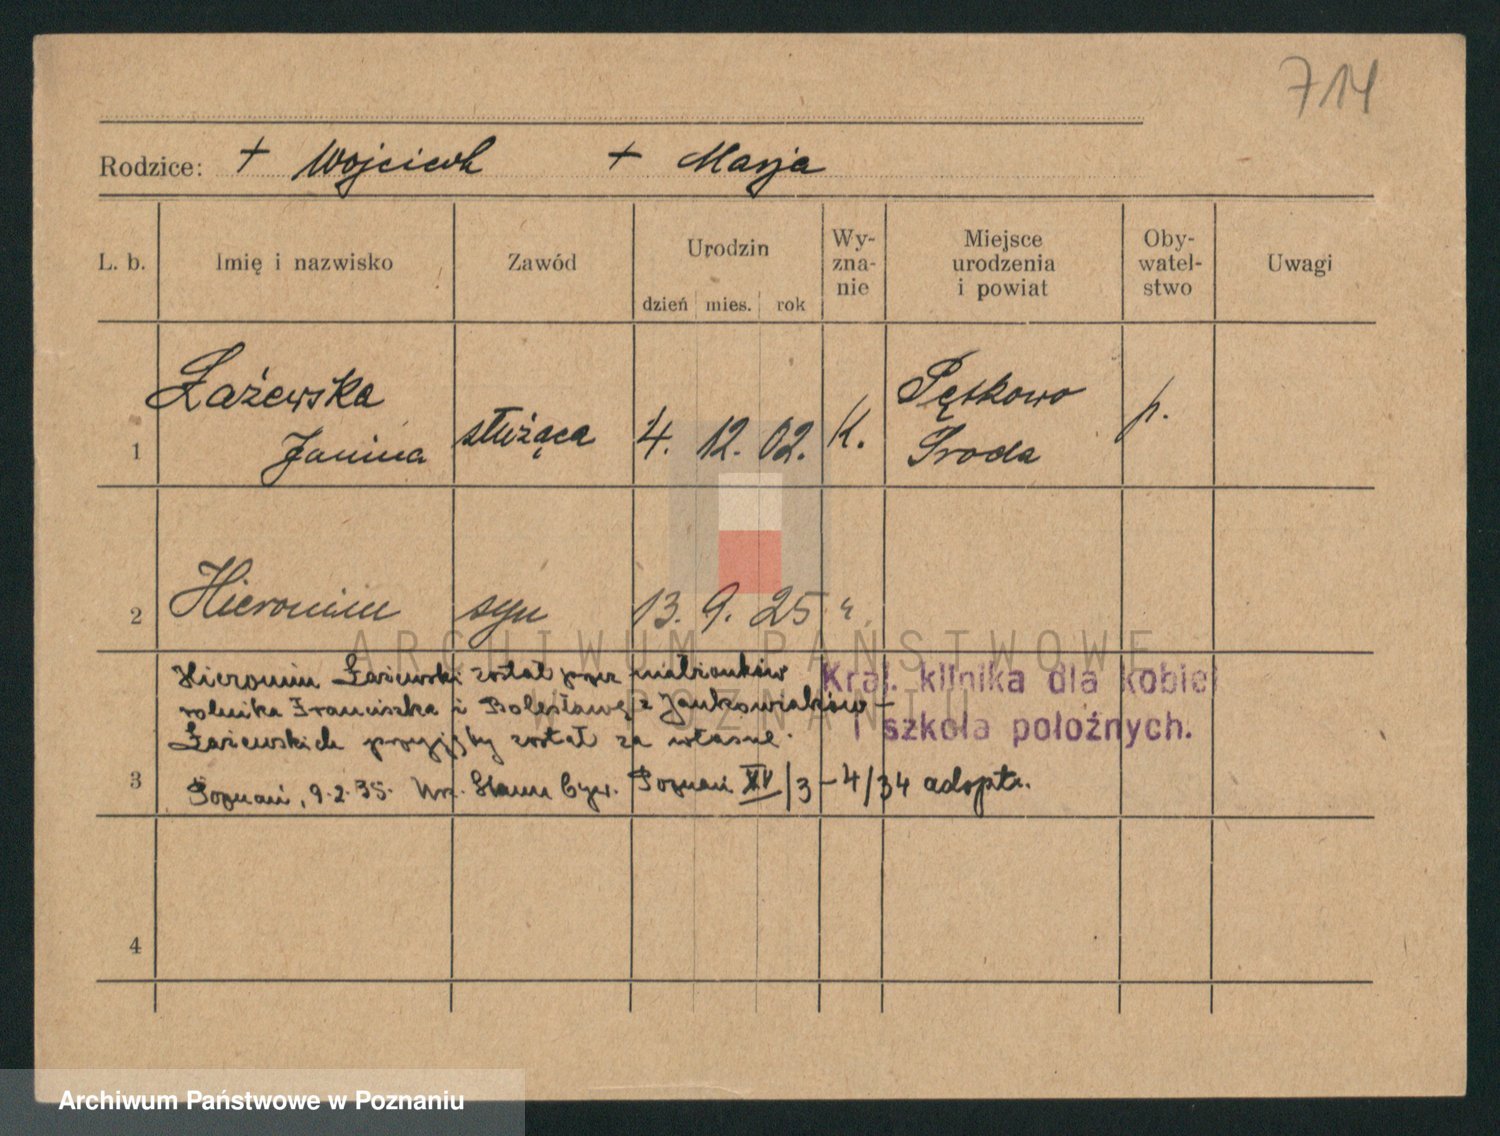 714
Rodzice: + Wojciech + Marja
L. b. Imię i nazwisko Zawód Urodzin dzień mies. rok Wy-zna-nie Miejsce urodzenia i powiat Oby-watel-stwo Uwagi
1 Łażewska Janina służąca 4. 12. 02. K. Pętkowo Środa p.
2 Hieronim syn 13. 9. 25 "
Hieronim Łażewski został przez małżonków
rolnika Franciszka i Bolesławę z Jankowiaków –
Łażewskich przyjęty został za własne.
3 Poznań, 9.2.35. Urz. Stanu Cyw. Poznań XV/3-4/34 adopt.
Kraj. klinika dla kobiet
i szkoła położnych.
4
ARCHIWUM PAŃSTWOWE
W POZNANIU
Archiwum Państwowe w Poznaniu